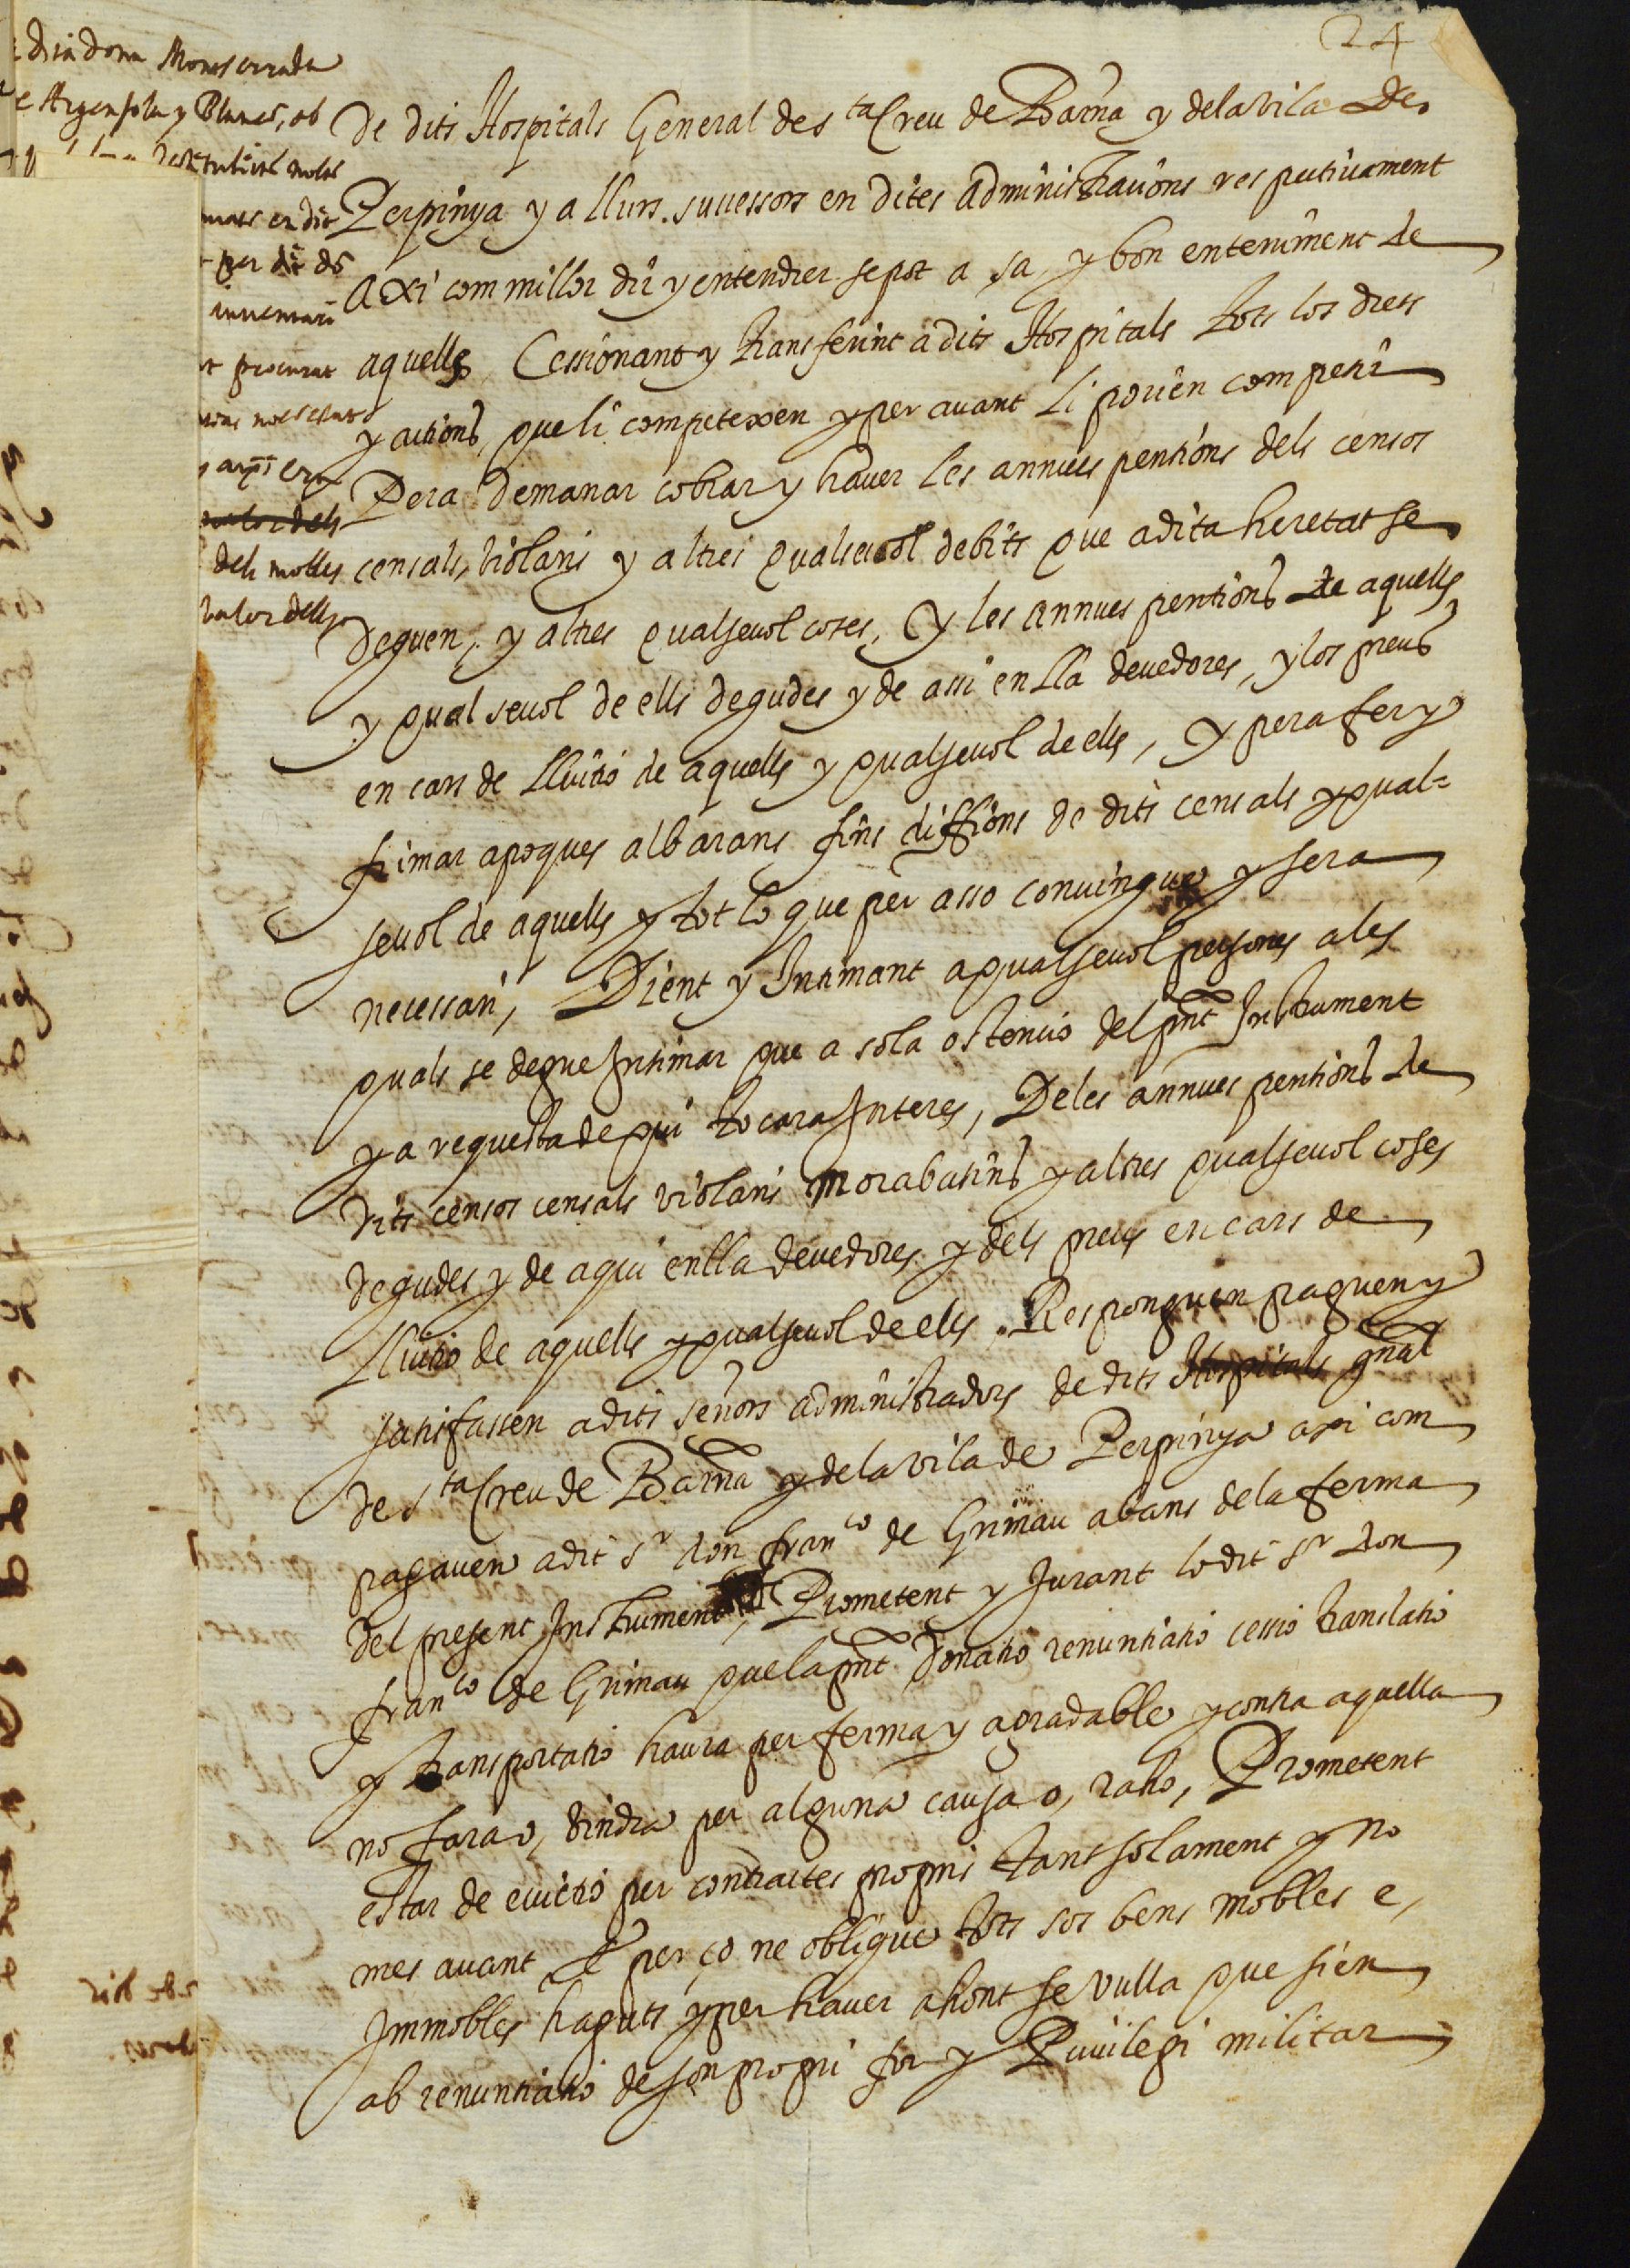 24
dria dona Monserrada
e Argensola y Blanes, ob
de dits Hospitals General de Sta Creu de Barña y de la vila de
Perpinya y a llurs successors en dites administrations respectivament
axi com millor dir y entendrer se pot a sa y bon enteniment de
aquells, Cessionant y transferint a dits Hospitals tots los drets
y actions que li competexen y per auant li porien competir
Pera demanar cobrar y hauer les annues pentions dels censos
censals, violaris y altres qualseuol debits que a dita heretat se
deguen, y altres qualseuol coses, y les annues pentions de aquells
y qualseuol de ells degudes y de assi en lla deuedores, y los preus
en cars de lluitio de aquells y qualseuol de ells, y pera fer y
firmar apoques albarans fins diffitions de dits censals y qual=
seuol de aquells y tot lo que per asso convingue y sera
necessari, Dient y Intimant a qualseuol persones a les
quals se degue Intimar que a sola ostencio del pnt Instrument
y a requesta de qui tocara Interes, De les annues pentions de
dits censos censals violaris morabatins y altres qualseuol coses
degudes y de aqui en lla deuedores y dels preus en cars de
lluitio de aquells y qualseuol de ells. Responguen paguen y
satisfassen a dits señors administradors de dits Hospitals gñal
de Sta Creu de Barña y de la vila de Perpinya axi com
pagauen a dit Sr don Franco de Grimau abans de la ferma
del present Instrument, Prometent y Jurant lo dit Sr don
Franco de Grimau que la pnt donatio renuntiatio cessio translatio
y transportatio haura per ferma y agradable y contra aquella
no fara o, vindra per alguna causa o, raho, Prometent
estar de euictio per contractes propris tant solament y no
mes auant E per ço ne obligue tots sos bens mobles e,
Immobles haguts y per hauer ahont se vulla que sien
ab renuntiatio de son propri for y Priuilegi militar
en dit
per dit
inuentari
procurat
dels mobles
valor dells